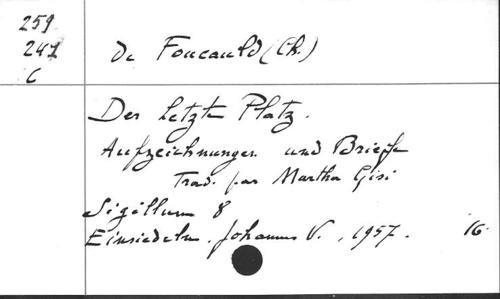 259
241
C
De Foucauld (Ch.)
Der letzte Platz.
Aufzeichnungen und Briefe
Trad. par Martha Gisi
Sigillum 8
Einsiedeln. Johannes V., 1957. 16